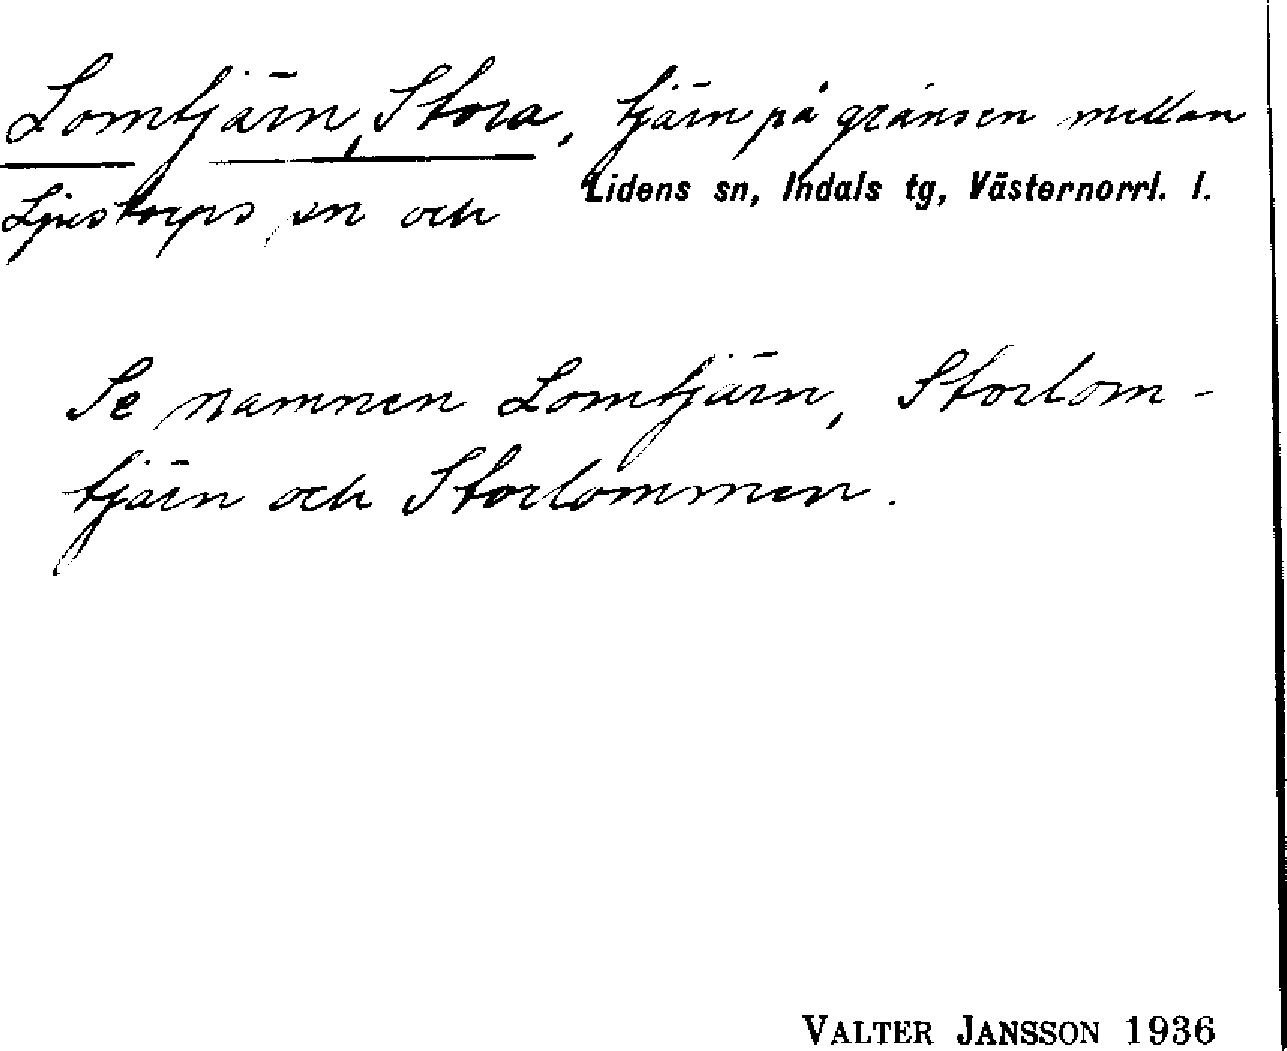 Lomtjärn, Stora, tjärn på gränsen mellan
Ljustorps sn och Lidens sn, Indals tg, Västernorrl. l.
Se namnen Lomtjärn, Storlom-
tjärn och Storlommen.
VALTER JANSSON 1936